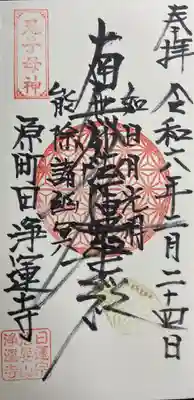 奉拝 令和六年二月二十四日
如日月光明
南無妙法蓮華経
能除諸幽冥
原町田 浄運寺
鬼子母神